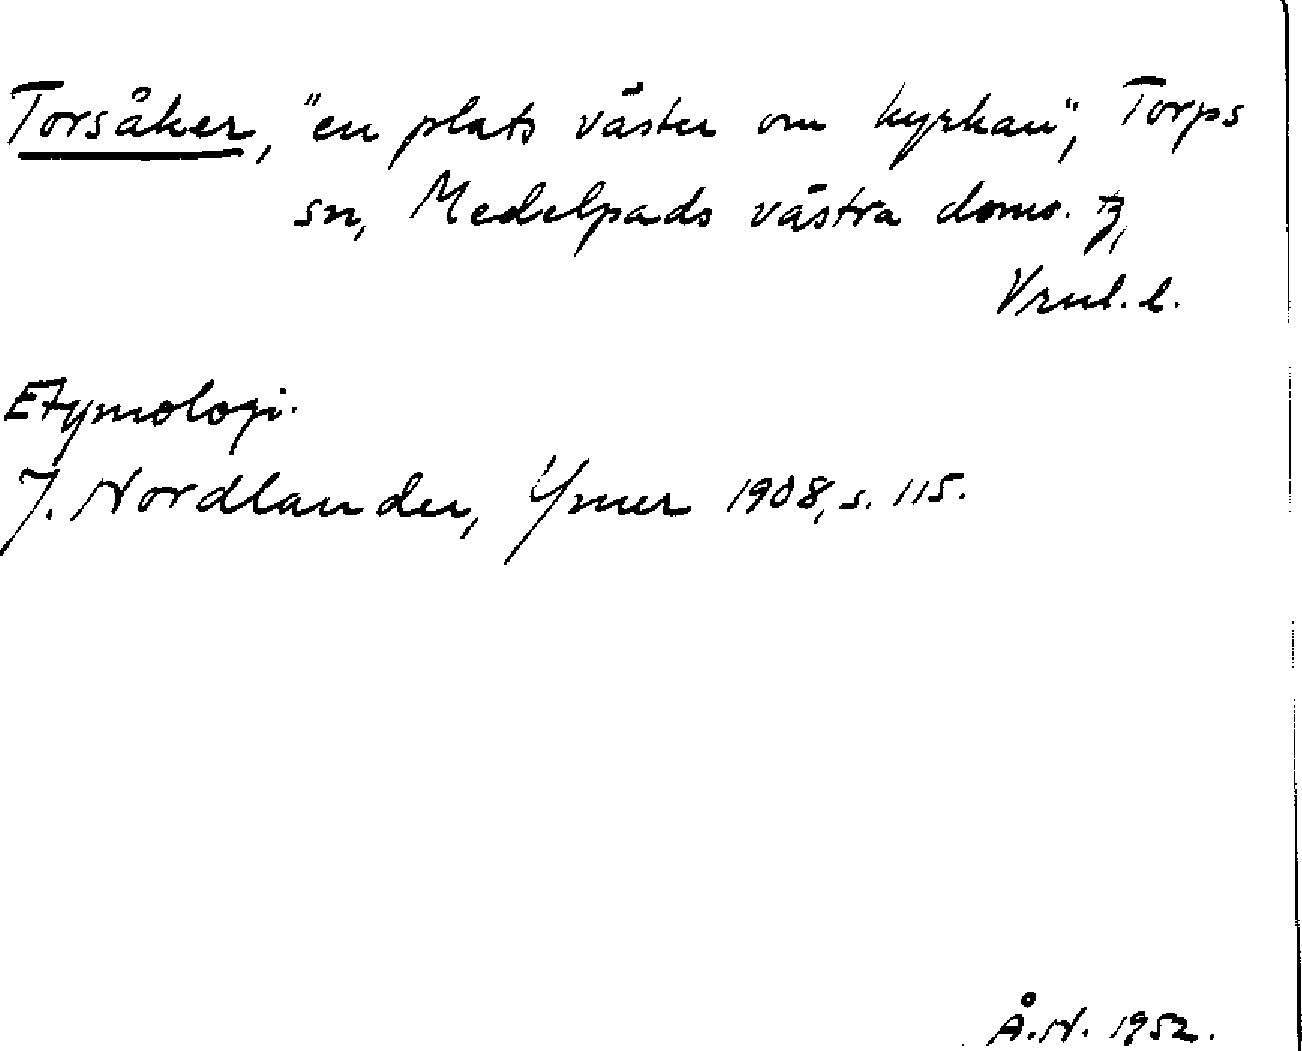 Torsåker, "en plats väster om kyrkan", Torps
sn, Medelpads västra doms. tg,
Vrnl. l.
Etymologi.
J. Nordlander, Ymer 1908, s. 115.
Å.N. 1952.